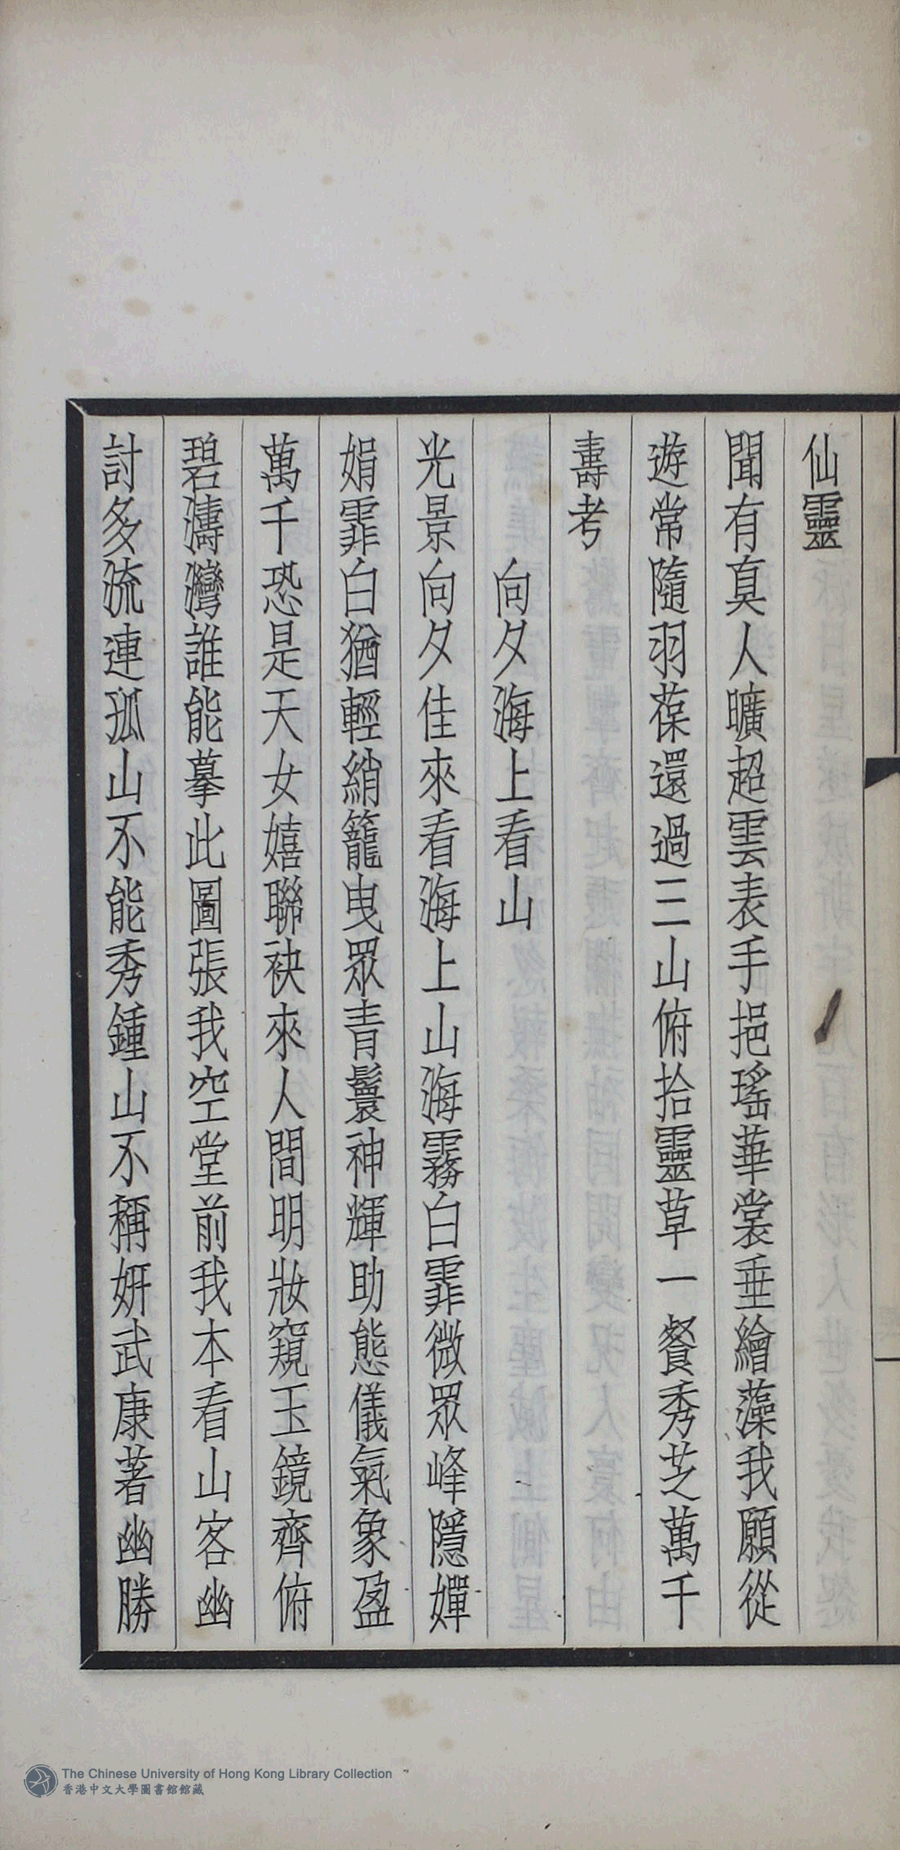 仙靈
聞有真人曠超雲表手挹瑤華裳垂繪藻我願從
遊常隨羽葆還過三山俯拾靈草一餐秀芝萬千
壽考
向夕海上看山
光景向夕佳來看海上山海霧白霏微眾峰隱嬋
娟霏白猶輕綃籠曳眾青鬟神輝助態儀氣象盈
萬千恐是天女嬉聯袂來人間明妝窺玉鏡齊俯
碧濤灣誰能摹此圖張我空堂前我本看山客幽
討多流連孤山不能秀鍾山不稱妍武康著幽勝
The Chinese University of Hong Kong Library Collection
香港中文大學圖書館館藏